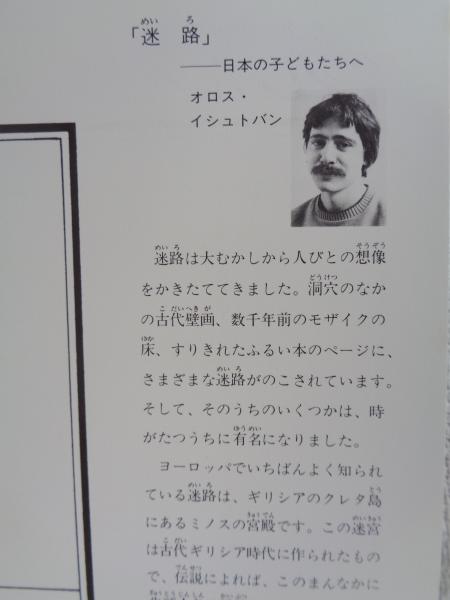 「迷路」
——日本の子どもたちへ
オロス・
イシュトバン
迷路は大むかしから人びとの想像
をかきたててきました。洞穴のなか
の古代壁画、数千年前のモザイクの
床、すりきれたふるい本のページに、
さまざまな迷路がのこされています。
そして、そのうちのいくつかは、時
がたつうちに有名になりました。
ヨーロッパでいちばんよく知られ
ている迷路は、ギリシアのクレタ島
にあるミノスの宮殿です。この迷宮
は古代ギリシア時代に作られたもの
で、伝説によれば、このまんなかに